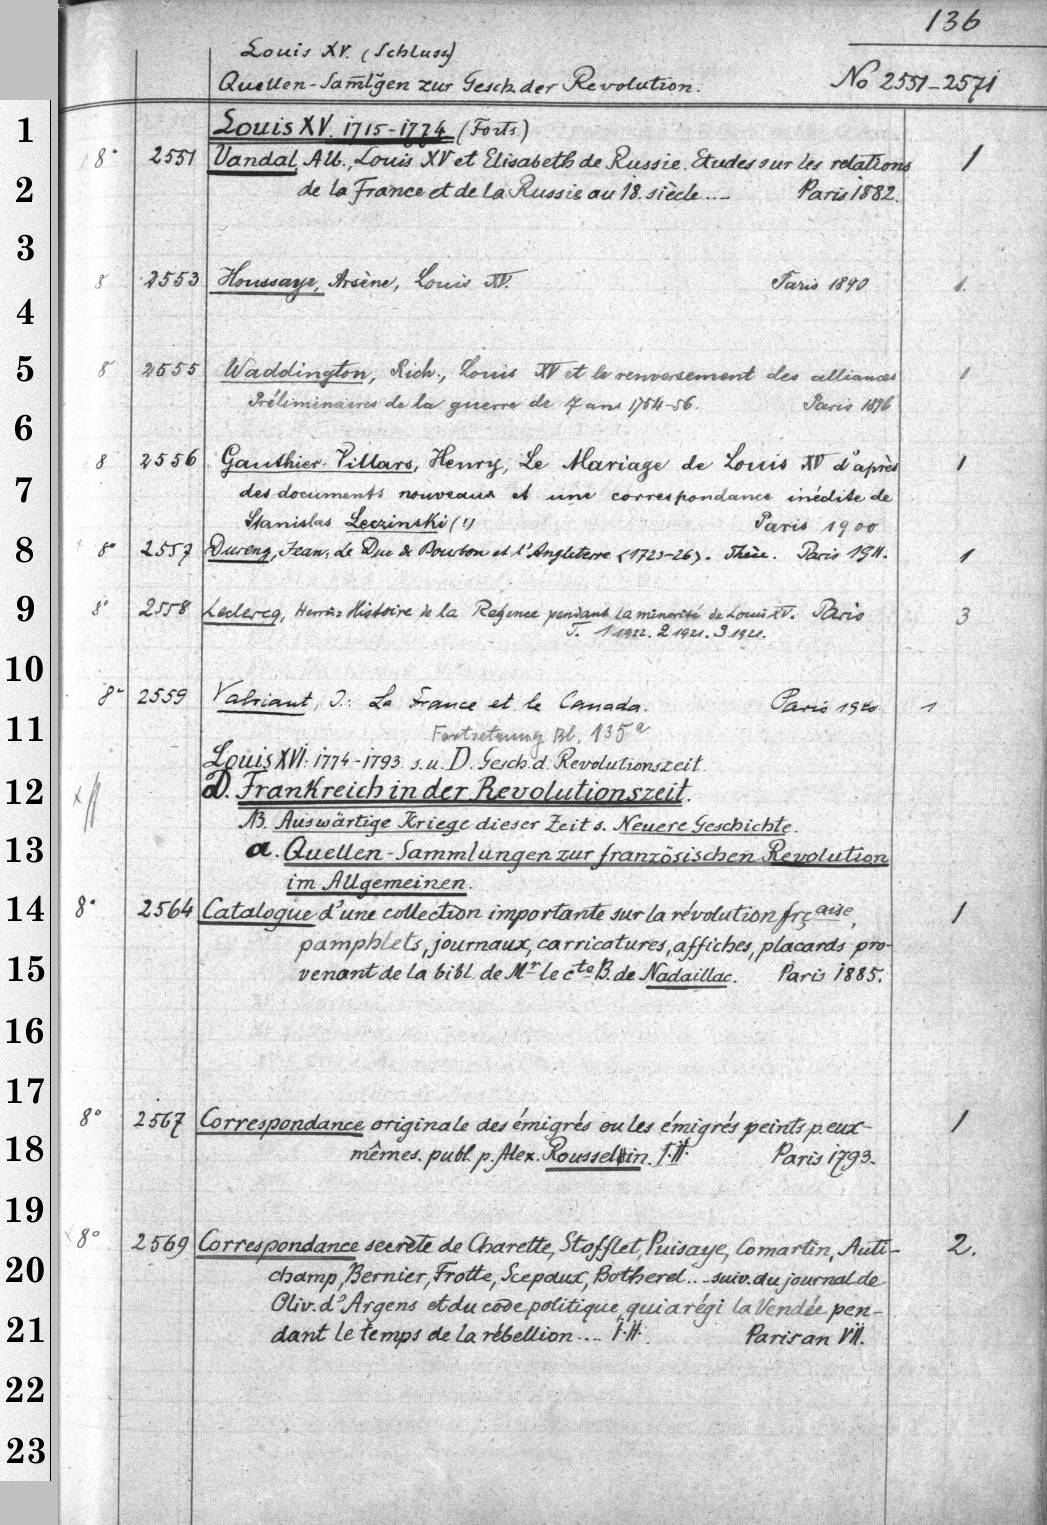 136
Louis XV. (Schluss)
Quellen-Samlgen zur Gesch. der Revolution. No 2551-2571
1 Louis XV. 1715-1774 (Forts.)
8° 2551 Vandal, Alb., Louis XV et Elisabeth de Russie. Etudes sur les relations 1
2 de la France et de la Russie au 18. siècle ... Paris 1882.
3
8 2553 Houssaye, Arsène, Louis XV. Paris 1890 1.
4
5 8 2555 Waddington, Rich., Louis XV et le renversement des alliances 1
Préliminaires de la guerre de 7 ans 1754-56. Paris 1896
6
8 2556 Gauthier-Villars, Henry, Le Mariage de Louis XV d'après 1
7 des documents nouveaux et une correspondance inédite de
Stanislas Leczinski (!) Paris 1900
8 8° 2557 Dureng, Jean, Le Duc de Bourbon et l'Angleterre (1723-26). Thèse. Paris 1911. 1
9 8° 2558 Leclercq, Henri: Histoire de la Régence pendant la minorité de Louis XV. Paris 3
T. 1 1922. 2 1921. 3 1921.
10
8° 2559 La France et le Canada. Paris 1
11 Fortsetzung Bl. 135a
Louis XVI. 1774-1793 s. u. D. Gesch. d. Revolutionszeit.
12 D. Frankreich in der Revolutionszeit.
NB. Auswärtige Kriege dieser Zeit s. Neuere Geschichte.
13 a. Quellen-Sammlungen zur französischen Revolution
im Allgemeinen.
14 8° 2564 Catalogue d'une collection importante sur la révolution frçaise, 1
pamphlets, journaux, carricatures, affiches, placards pro-
15 venant de la bibl. de Mr le cte B. de Nadaillac. Paris 1885.
16
17
8° 2567 Correspondance originale des émigrés ou les émigrés peints p. eux- 1
18 mêmes. publ. p. Alex. Rousselin. I.II. Paris 1793.
19
8° 2569 Correspondance secrète de Charette, Stofflet, Puisaye, Comartin, Auti- 2.
20 champ, Bernier, Frotte, Scepaux, Botherel... suiv. du journal de
Oliv. d'Argens et du code politique qui a régi la Vendée pen-
21 dant le temps de la rébellion ... I.II. Paris an VII.
22
23